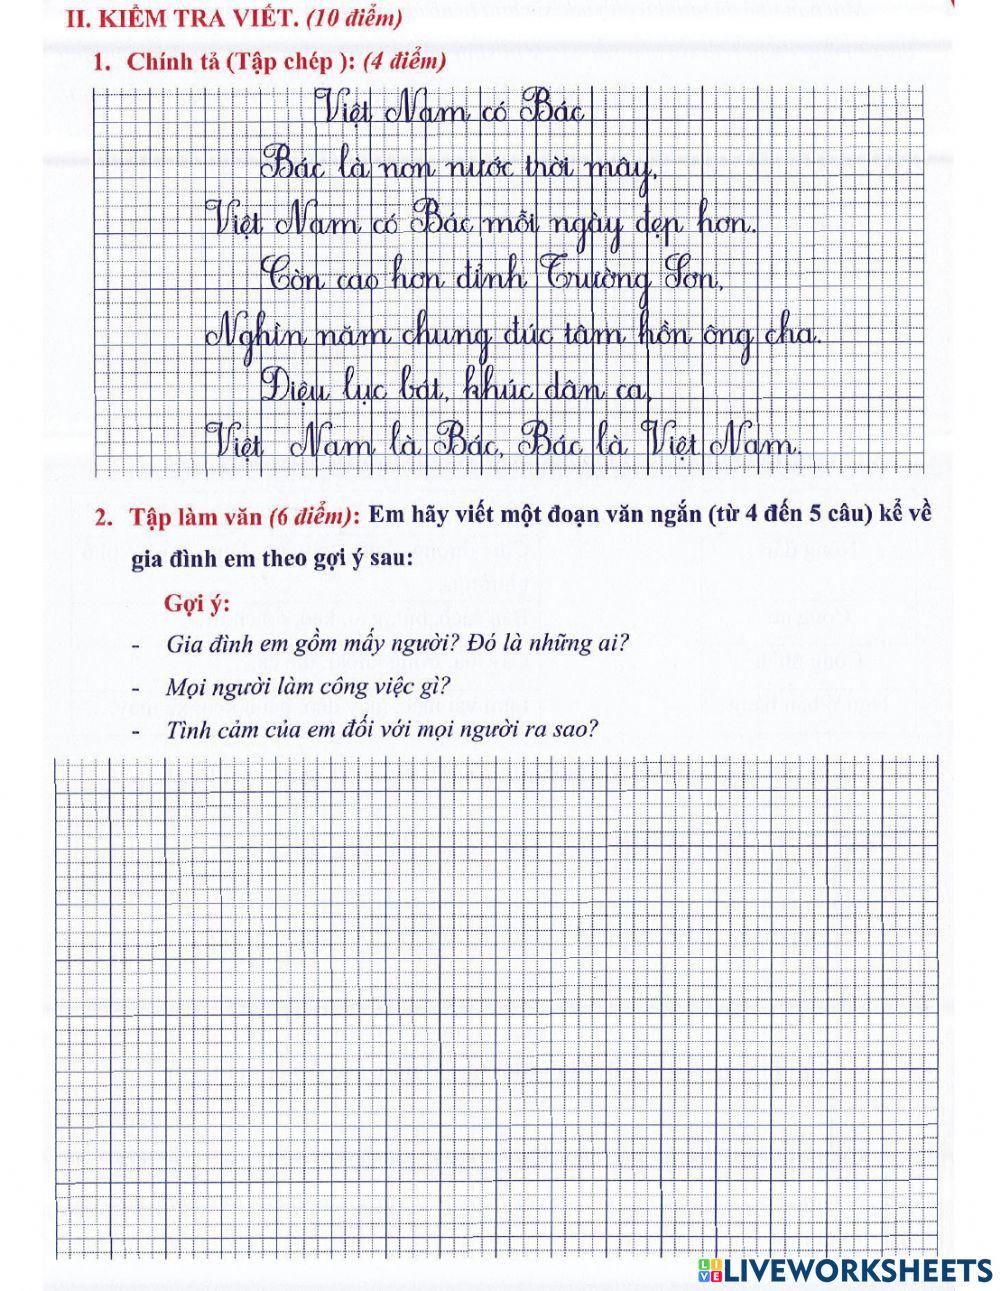 II. KIỂM TRA VIẾT. (10 điểm)
1. Chính tả (Tập chép ): (4 điểm)
Việt Nam có Bác
Bác là non nước trời mây,
Việt Nam có Bác mỗi ngày đẹp hơn.
Còn cao hơn đỉnh Trường Sơn,
Nghìn năm chung đúc tâm hồn ông cha.
Điệu lục bát, khúc dân ca,
Việt Nam là Bác, Bác là Việt Nam.
2. Tập làm văn (6 điểm): Em hãy viết một đoạn văn ngắn (từ 4 đến 5 câu) kể về
gia đình em theo gợi ý sau:
Gợi ý:
- Gia đình em gồm mấy người? Đó là những ai?
- Mọi người làm công việc gì?
- Tình cảm của em đối với mọi người ra sao?
LIVE LIVEWORKSHEETS